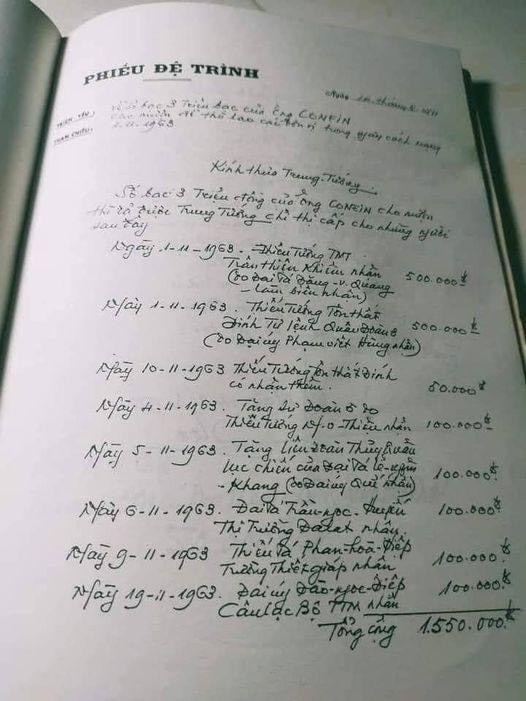 PHIẾU ĐỆ TRÌNH
Ngày 10 tháng
TRÍCH YẾU: Về số bạc 3 Triệu bạc của Ông CONEIN
cho mượn để thù lao các đơn vị trong ngày cách mạng
THAM CHIẾU: 1-11-1963
Kính thưa Trung-Tướng
Số bạc 3 Triệu đồng của Ông CONEIN cho mượn
thì đã được Trung Tướng chỉ thị cấp cho những người
sau đây
Ngày 1-11-1963 - Thiếu Tướng TMT
Trần thiện Khiêm nhận 500.000đ
(do Đại tá Đặng-v. Quang
- làm biên nhận)
Ngày 1-11-1963. Thiếu Tướng Tôn thất
Đính Tư lệnh Quân Đoàn 3 500.000đ
(do Đại úy Phạm viết Hùng nhận)
Ngày 10-11-1963 Thiếu Tướng Tôn thất Đính
có nhận thêm. 50.000đ
Ngày 4-11-1963. Tặng Sư Đoàn 5 do
Thiếu Tướng Ng-v-Thiệu nhận 100.000đ
Ngày 5-11-1963. Tặng Liên Đoàn Thủy Quân
lục chiến của Đại tá Lê-nguyên
- Khang (do Đại úy Quế nhận) 100.000đ
Ngày 6-11-1963. Đại tá Trần-ngọc-Huyến
Thị Trưởng Dalat nhận. 100.000đ
Ngày 9-11-1963 Thiếu tá Phan-hòa-Hiệp
Trường Thiết giáp nhận 100.000đ
Ngày 19-11-1963. Đại úy Đào-ngọc-Điệp
Câu lạc Bộ TTM nhận 100.000đ
Tổng cộng 1.550.000đ